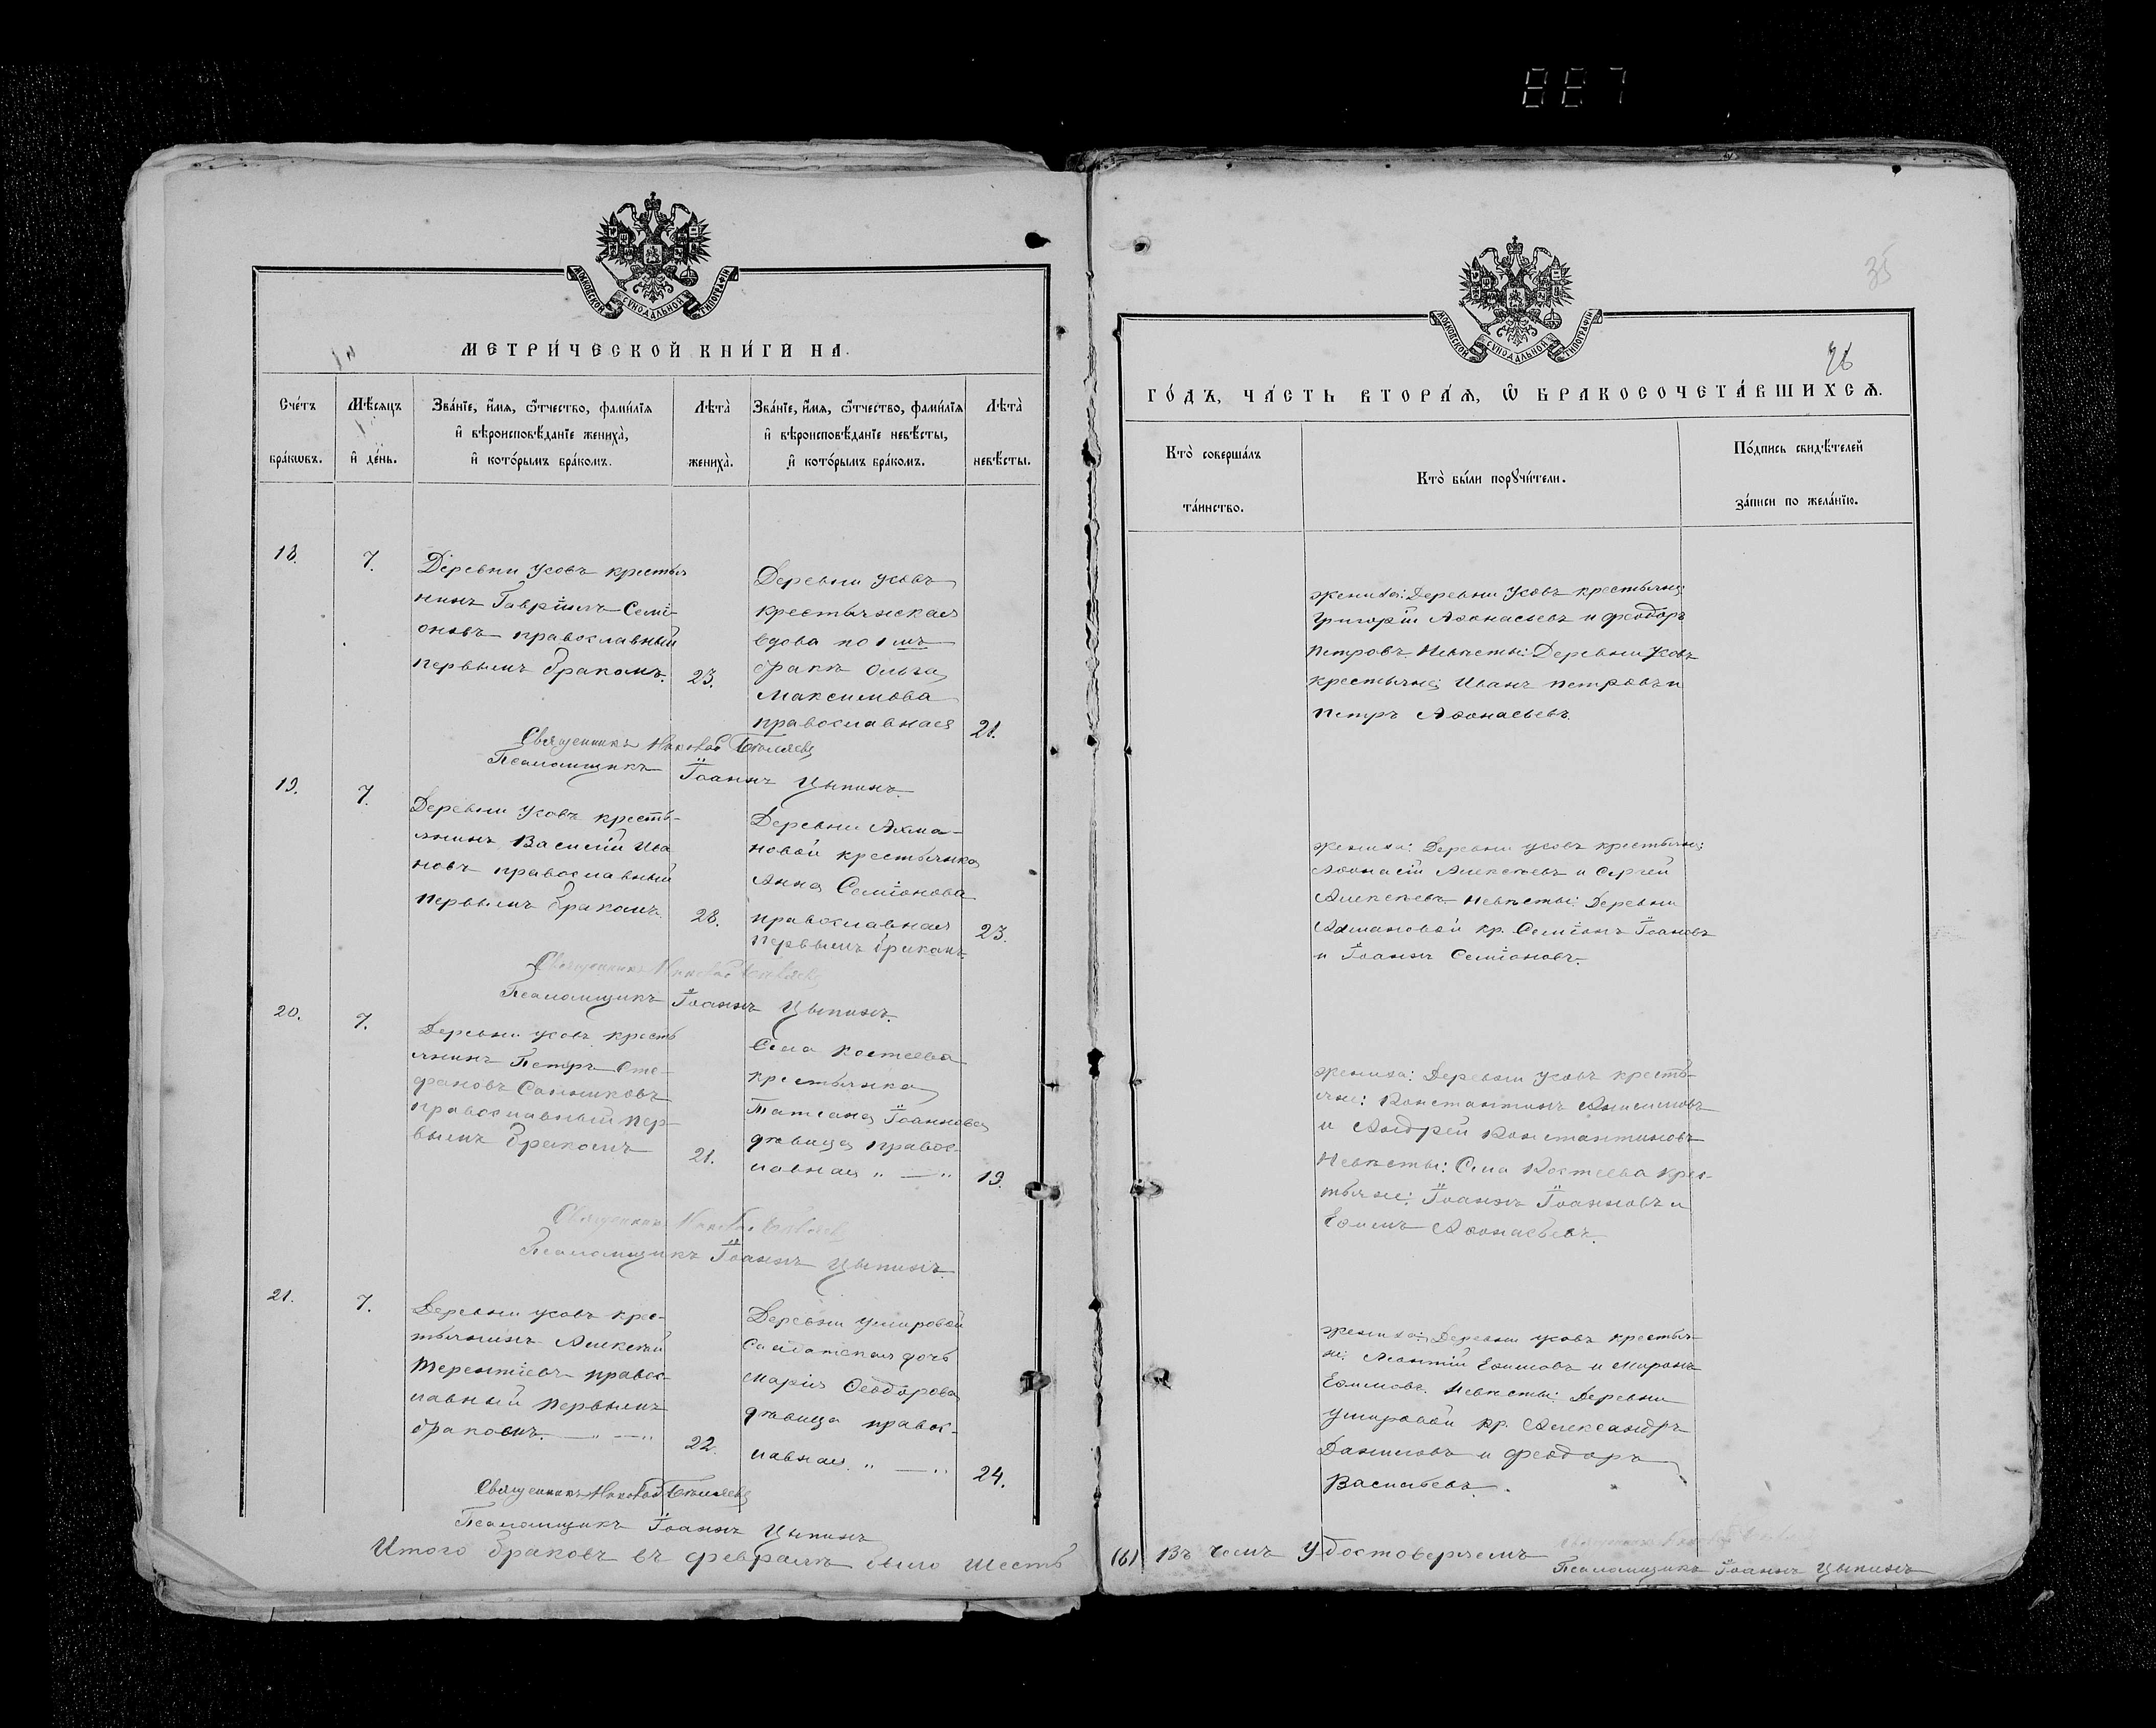 887
МОСКОВСКОЙ СѴНОДАЛЬНОЙ ТИПОГРАФІИ
МЕТРИ́ЧЕСКОЙ КНИ́ГИ НА
Сче́тъ бра́кѡвъ.
Мѣ́сяцъ и҆ де́нь.
Зва́нїе, и҆́мя, ѻ҆́тчество, фами́лїя
и҆ вѣроисповѣ́данїе жениха̀,
и҆ кото́рымъ бра́комъ.
Лѣта̀ жениха̀.
Зва́нїе, и҆́мя, ѻ҆́тчество, фами́лїя
и҆ вѣроисповѣ́данїе невѣ́сты,
и҆ кото́рымъ бра́комъ.
Лѣта̀ невѣ́сты.
18.
7.
Деревни Усовъ крестья
нинъ Гавріилъ Семі-
оновъ православный
первымъ бракомъ.
23.
Деревни Усовъ
крестьянская
вдова по 1мъ
бракѣ Ольга
Максимова
православная
21.
Священникъ Николай
Псаломщикъ Іоаннъ Цыпинъ.
19.
7.
Деревни Усовъ кресть-
янинъ Василій Ива
новъ православный
первымъ бракомъ.
28.
Деревни Ахма-
новой крестьянка
Анна Семіонова
православная
первымъ бракомъ
23.
Священникъ Николай
Псаломщикъ Іоаннъ Цыпинъ.
20.
7.
Деревни Усовъ кресть
янинъ Петръ Сте-
фановъ Сальниковъ
православный пер-
вымъ бракомъ
21.
Села Костеева
крестьянка
Татіана Іоаннова
дѣвица правос-
лавная „ — „
19.
Священникъ Николай
Псаломщикъ Іоаннъ Цыпинъ.
21.
7.
Деревни Усовъ крес-
тьянинъ Алексѣй
Терентіевъ правос-
лавный первымъ
бракомъ. — „ — „
22.
Деревни Умировой
Солдатская дочь
Марія Ѳеодорова
дѣвица правос-
лавная. „ — „
24.
Священникъ Николай
Псаломщикъ Іоаннъ Цыпинъ
Итого браковъ въ февралѣ было шесть
35
МОСКОВСКОЙ СѴНОДАЛЬНОЙ ТИПОГРАФІИ
ГО́ДЪ, ЧА́СТЬ ВТОРА́Я, Ѡ҆ БРАКОСОЧЕТА́ВШИХСЯ.
Кто̀ соверша́лъ
та́инство.
Кто̀ бы́ли порꙋчи́тели.
По́дпись свидѣ́телей
за́писи по жела́нїю.
жениха: Деревни Усовъ крестьяне:
Григорій Аѳонасьевъ и Феодоръ
Петровъ. Невѣсты: Деревни Усовъ
крестьяне: Иванъ Петровъ и
Петръ Аѳонасьевъ.
жениха: Деревни Усовъ крестьяне:
Аѳонасій Алексѣевъ и Сергей
Алексѣевъ. Невѣсты: Деревни
Ахмановой кр. Семіонъ Іоановъ
и Іоаннъ Семіоновъ.
жениха: Деревни Усовъ кресть-
яне: Константинъ Анисимовъ
и Андрей Константиновъ
Невѣсты: Села Костеева крес-
тьяне: Іоаннъ Іоанновъ и
Ефимъ Аѳонасьевъ.
жениха: Деревни Усовъ крестья-
не: Леонтій Ефимовъ и Миронъ
Ефимовъ. Невѣсты: Деревни
Умировой кр. Александръ
Даниловъ и Феодоръ
Васильевъ.
(6) Въ чемъ Удостоверяемъ
Псаломщикъ Іоаннъ Цыпинъ